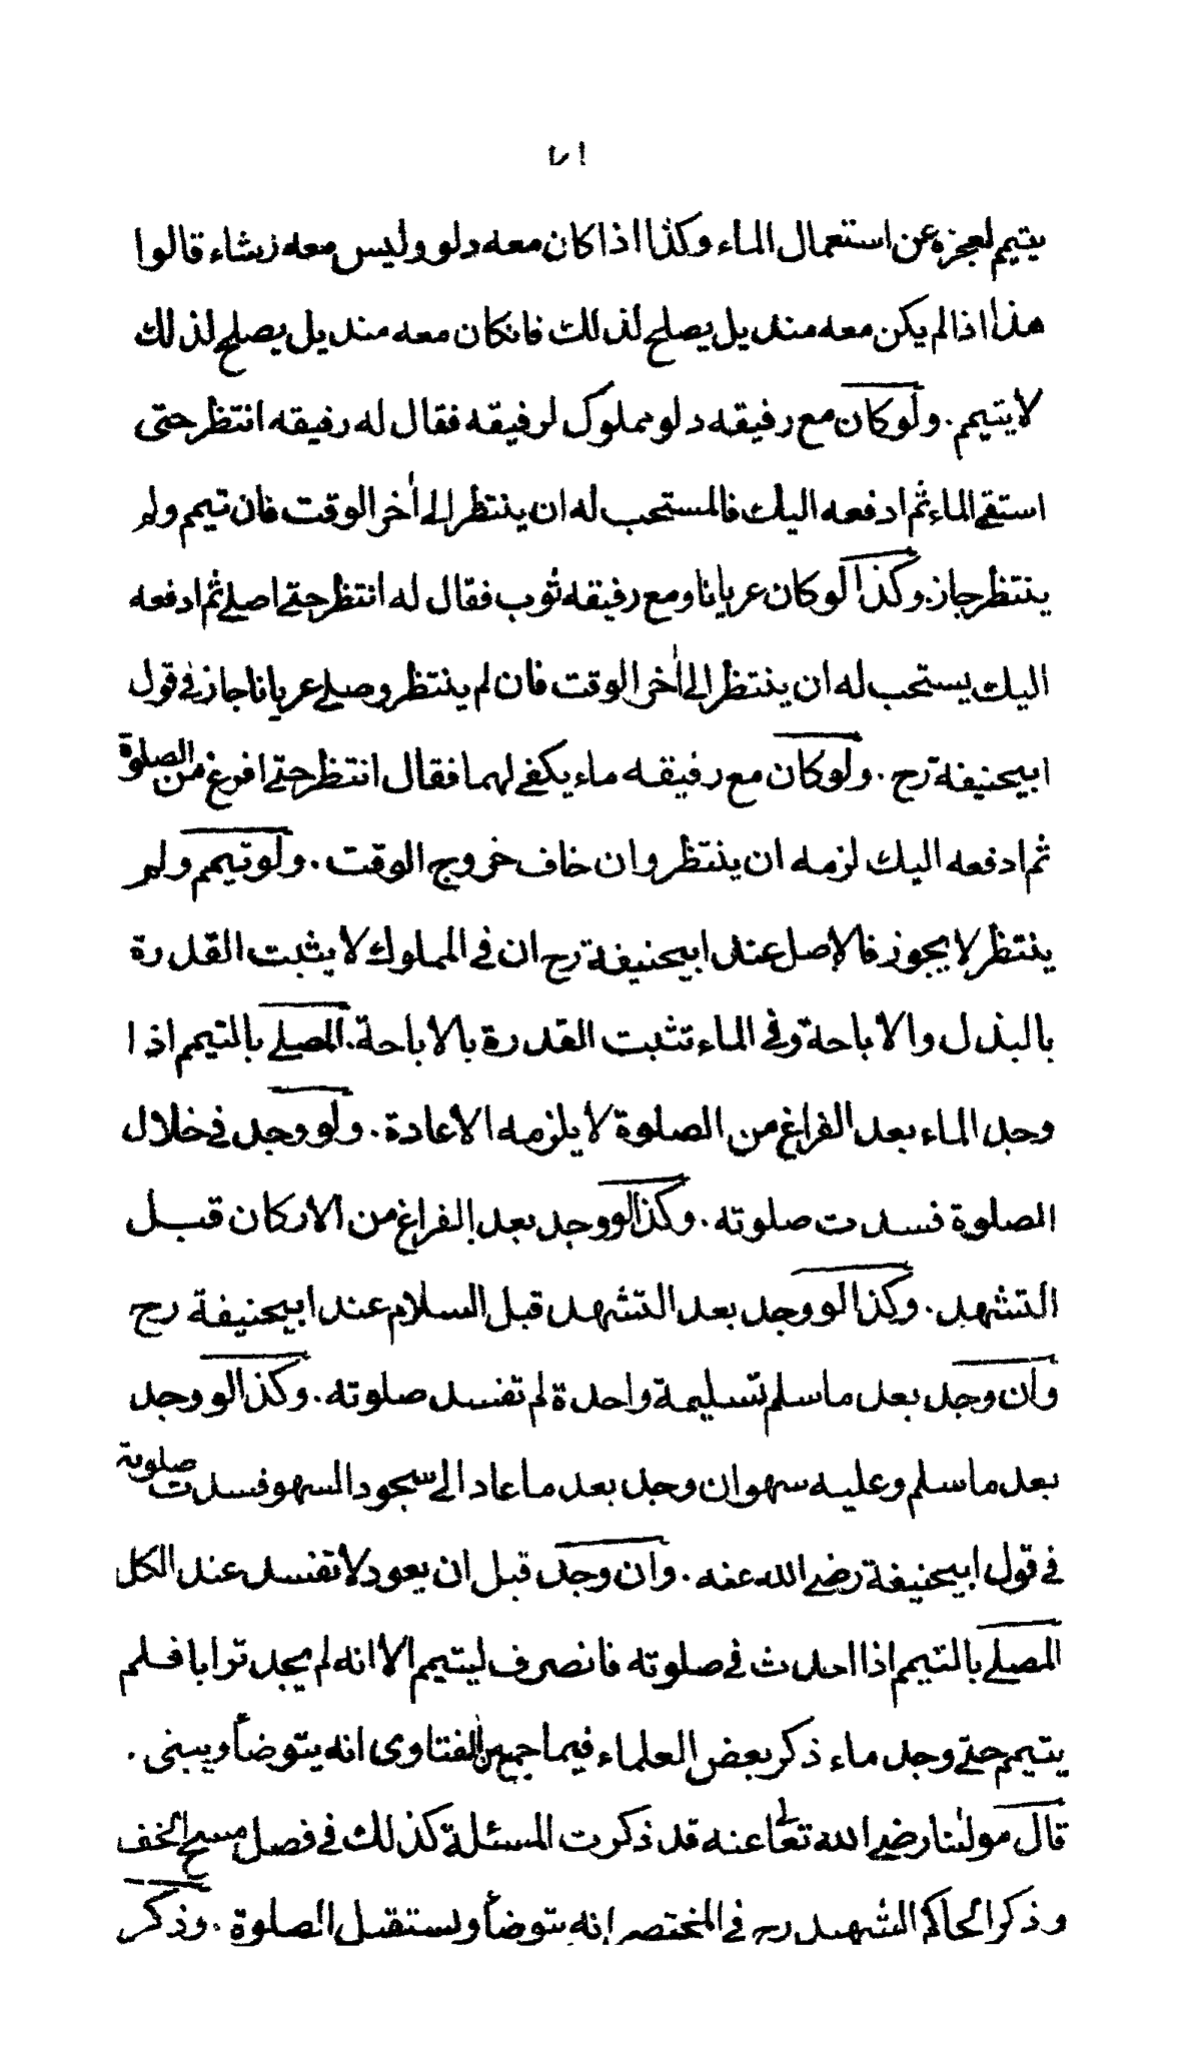 يتيمم لعجزه عن استعمال الماء وكذا اذا كان معه دلو وليس معه رشاء قالوا
هذا اذا لم يكن معه منديل يصلح لذلك فانكان معه منديل يصلح لذلك
لا يتيمم . ولو كان مع رفيقه دلو مملوك لرفيقه فقال له رفيقه انتظر حتى
استقي الماء ثم ادفعه اليك فالمستحب له ان ينتظر الى أخر الوقت فان تيمم ولم
ينتظر جاز . وكذا لو كان عريانا ومع رفيقه ثوب فقال له انتظر حتى اصلي ثم ادفعه
اليك يستحب له ان ينتظر الى أخر الوقت فان لم ينتظر وصلى عريانا جاز في قول
ابيحنيفة رح . ولو كان مع رفيقه ماء يكفي لهما فقال انتظر حتى افرغ من الصلوة
ثم ادفعه اليك لزمه ان ينتظر وان خاف خروج الوقت . ولو تيمم ولم
ينتظر لا يجوز فالاصل عند ابيحنيفة رح ان في المملوك لا يثبت القدرة
بالبذل والاباحة وفي الماء تثبت القدرة بالاباحة . المصلي بالتيمم اذا
وجد الماء بعد الفراغ من الصلوة لا يلزمه الاعادة . ولو وجد في خلال
الصلوة فسدت صلوته . وكذا لو وجد بعد الفراغ من الاركان قبل
التشهد . وكذا لو وجد بعد التشهد قبل السلام عند ابيحنيفة رح
وان وجد بعد ما سلم تسليمة واحدة لم تفسد صلوته . وكذا لو وجد
بعد ما سلم وعليه سهو ان وجد بعد ما عاد الى سجود السهو فسدت صلوته
في قول ابيحنيفة رضي الله عنه . وان وجد قبل ان يعود لا تفسد عند الكل
المصلي بالتيمم اذا احدث في صلوته فانصرف ليتيمم الا انه لم يجد ترابا فلم
يتيمم حتى وجد ماء ذكر بعض العلماء فيما جمع من الفتاوى انه يتوضأ ويبنى .
قال مولنا رضي الله تعالى عنه قد ذكرت المسئلة كذلك في فصل مسح الخف
وذكر الحاكم الشهيد رح في المختصر انه يتوضأ ويستقبل الصلوة . وذكر